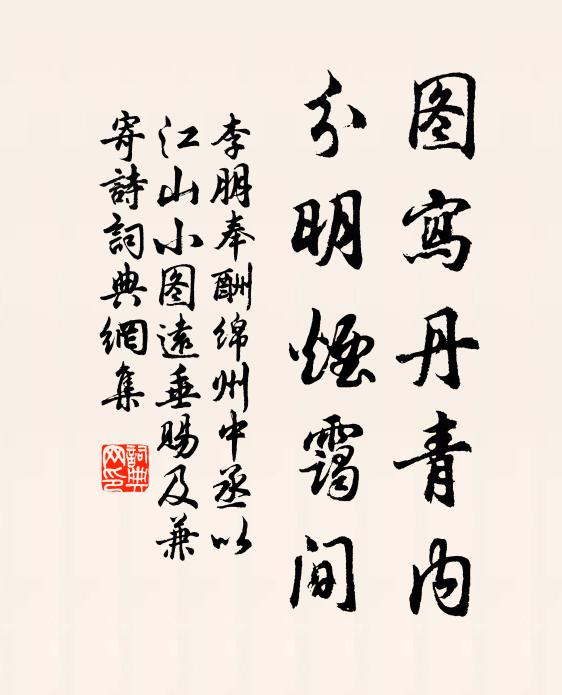 图寫丹青内
分明煙靄间
李朋奉酬绵州中丞以
江山小图遠垂赐及兼
寄詩詞典網集
詞典
网印